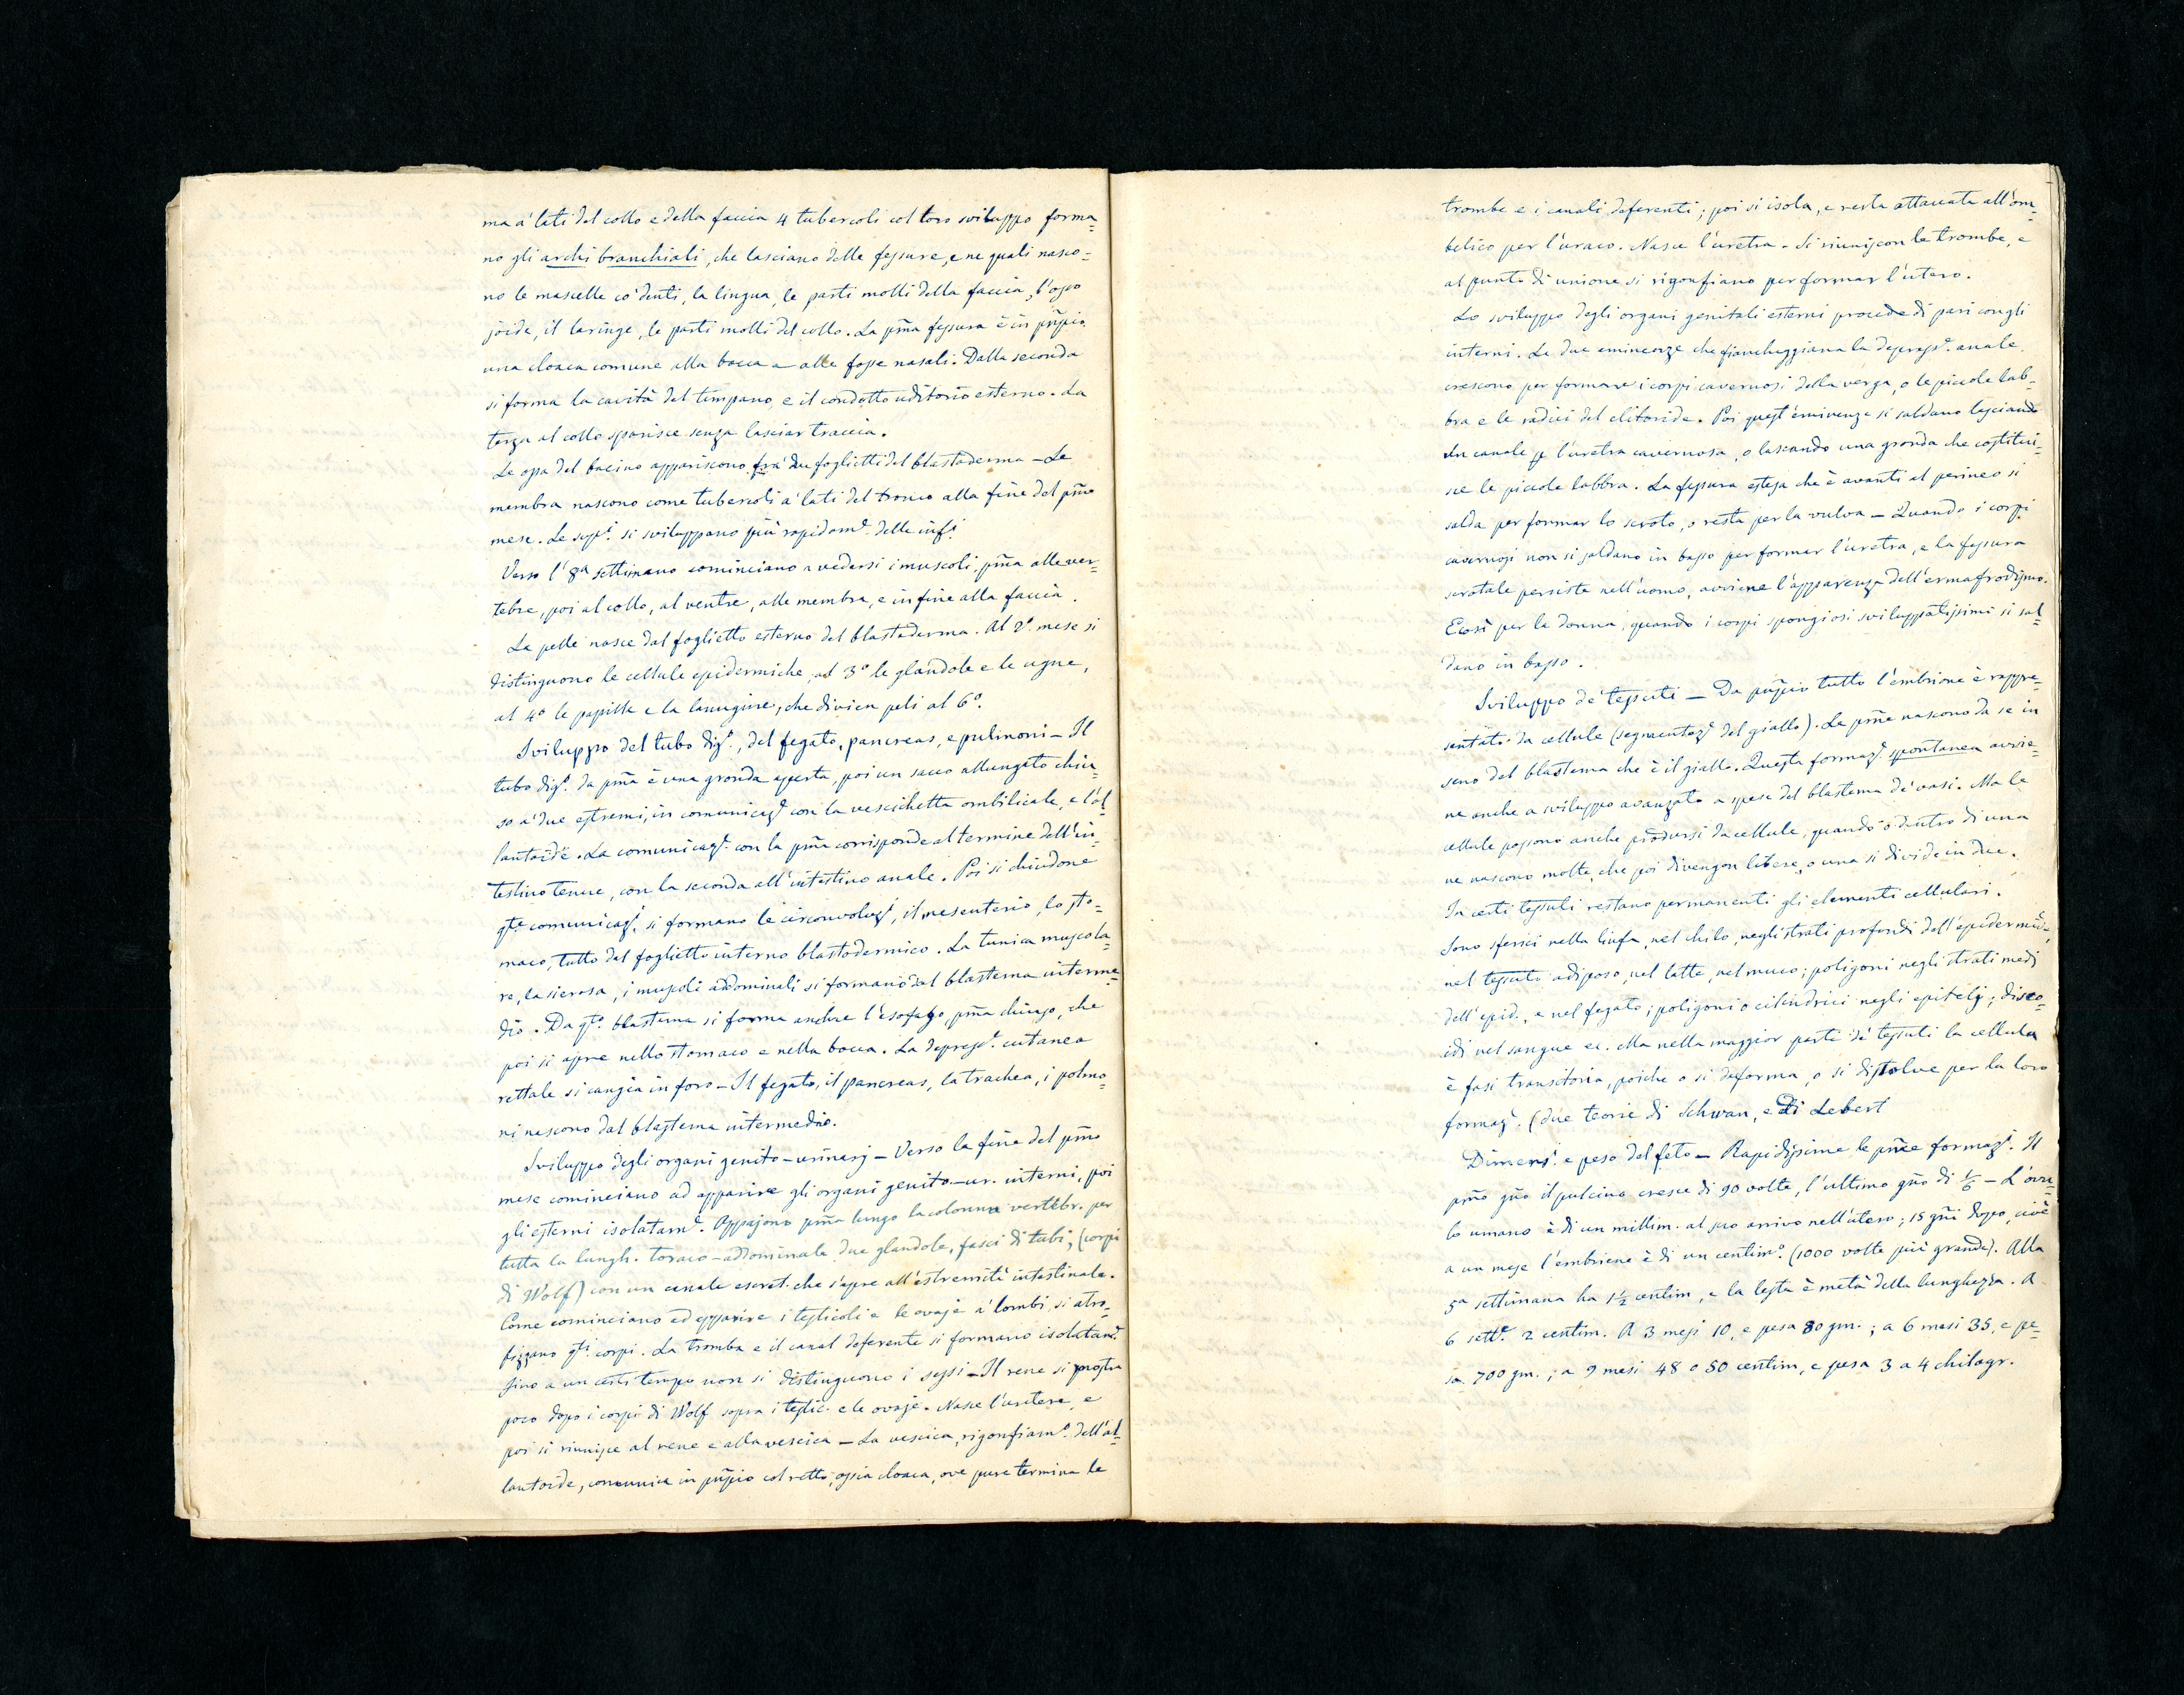 ma a' lati del collo e della faccia 4 tubercoli col loro sviluppo forma=
no gli archi branchiali, che lasciano delle fessure, e ne quali nasco=
no le mascelle co' denti, la lingua, le parti molli della faccia, l'osso
joide, il laringe, le parti molli del collo. La pm̃a fessura è in pñpio
una cloaca comune alla bocca e alle fosse nasali. Dalla seconda
si forma la cavità del timpano e il condotto uditorio esterno. La
terza al collo sparisce senza lasciar traccia.
Le ossa del bacino appariscono fra' due foglietti del blastoderma – Le
membra nascono come tubercoli a' lati del tronco alla fine del pm̃o
mese. Le supi. si sviluppano più rapidame. delle infi.
Verso l'8a settimana cominciano a vedersi i muscoli, pm̃a alle ver=
tebre, poi al collo, al ventre, alle membra, e infine alla faccia.
La pelle nasce dal foglietto esterno del blastoderma. Al 2o. mese si
distinguono le cellule epidermiche, al 3o le glandole e le ugne,
al 4o le papille e la lanugine, che divien peli al 6o.
Sviluppo del tubo dige., del fegato, pancreas, e pulmoni – Il
tubo dige. da pm̃a è una gronda aperta, poi un sacco allungato chiu=
so a' due estremi, in comunicaze con la vescichetta ombilicale, e l'al=
lantoide. La comunicaze. con la pm̃a corrisponde al termine dell'in=
testino tenue, con la seconda all'intestino anale. Poi si chiudono
qte. comunicazi. si formano le circonvoluzi, il mesenterio, lo sto=
maco, tutto dal foglietto interno blastodermico. La tunica muscola=
re, la sierosa, i muscoli addominali si formano dal blastema interme=
dio. Da qto. blastema si forma anche l'esofago, pm̃a chiuso, che
poi si apre nello stomaco e nella bocca. La depresse. cutanea
rettale si cangia in foro – Il fegato, il pancreas, la trachea, i polmo=
ni nascono dal blastema intermedio.
Sviluppo degli organi genito-urinarj – Verso la fine del pm̃o
mese cominciano ad apparire gli organi genito-ur. interni, poi
gli esterni isolatame. Appajono pm̃a lungo la colonna vertebr. per
tutta la lungh. toraco-addominale due glandole, fasci di tubi, (corpi
di Wolf) con un canale escret. che s'apre all'estremità intestinale.
Come cominciano ad apparire i testicoli e le ovaje a' lombi, si atro=
fizzano qti. corpi. La tromba e il canal deferente si formano isolatame.
fino a un certo tempo non si distinguono i sessi – Il rene si mostra
poco dopo i corpi di Wolf sopra i testic. e le ovaje. Nasce l'uretere, e
poi si riunisce al rene e alla vescica – La vescica, rigonfiamo. dell'al=
lantoide, comunica in pñpio col retto, ossia cloaca, ove pure termina le
trombe e i canali deferenti; poi si isola, e resta attaccata all'om=
belico per l'uraco. Nasce l'uretra. Si riuniscon le trombe, e
al punto di unione si rigonfiano per formar l'utero.
Lo sviluppo degli organi genitali esterni procede di pari congli
interni. Le due eminenze che fiancheggiano la depresse. anale
crescono per formare i corpi cavernosi della verga, o le piccole lab=
bra e le radici del clitoride. Poi quest'eminenze si saldano lasciando
un canale p l'uretra cavernosa, o lasciando una gronda che costitui=
sce le piccole labbra. La fessura estesa che è avanti al perineo si
salda per formar lo scroto, o resta per la vulva – Quando i corpi
cavernosi non si saldano in basso per formar l'uretra, e la fessura
scrotale persiste nell'uomo, avviene l'apparenza dell'ermafrodismo.
E così per la donna, quando i corpi spongiosi sviluppatissimi si sal=
dano in basso.
Sviluppo de' tessuti – Da pñpio tutto l'embrione è rappre=
sentato da cellule (segmentaze del giallo). Le pm̃e nascono da se in
seno del blastema che è il giallo. Questa formaze. spontanea avvie=
ne anche a sviluppo avanzato a spese del blastema de' vasi. Ma le
cellule possono anche prodursi da cellule, quando o dentro di una
ne nascono molte, che poi divengon libere, o una si divide in due.
In certi tessuti restano permanenti gli elementi cellulari.
Sono sferici nella linfa, nel chilo, negli strati profondi dell'epidermide,
nel tessuto adiposo, nel latte, nel muco; poligoni negli strati medj
dell'epid., e nel fegato; poligoni o cilindrici negli epitelj; disco=
idi nel sangue ec. Ma nella maggior parte de' tessuti la cellula
è fasi transitoria, poiche o si deforma, o si dissolve per la loro
formaze. (due teorie di Schwan, e di Lebert
Dimensi. e peso del feto – Rapidissime le pm̃e formazi. Il
pm̃o gño il pulcino cresce di 90 volte, l'ultimo gño di 1/6 – L'ovu=
lo umano è di un millim. al suo arrivo nell'utero; 15 gñi dopo, cioè
a un mese l'embrione è di un centimo. (1000 volte più grande). Alla
5a settimana ha 1 1/2 centim, e la testa è metà della lunghezza. A
6 sette. 2 centim. A 3 mesi 10, e pesa 80 gm.; a 6 mesi 35, e pe=
sa 700 gm.; a 9 mesi 48 o 50 centim, e pesa 3 a 4 chilogr.